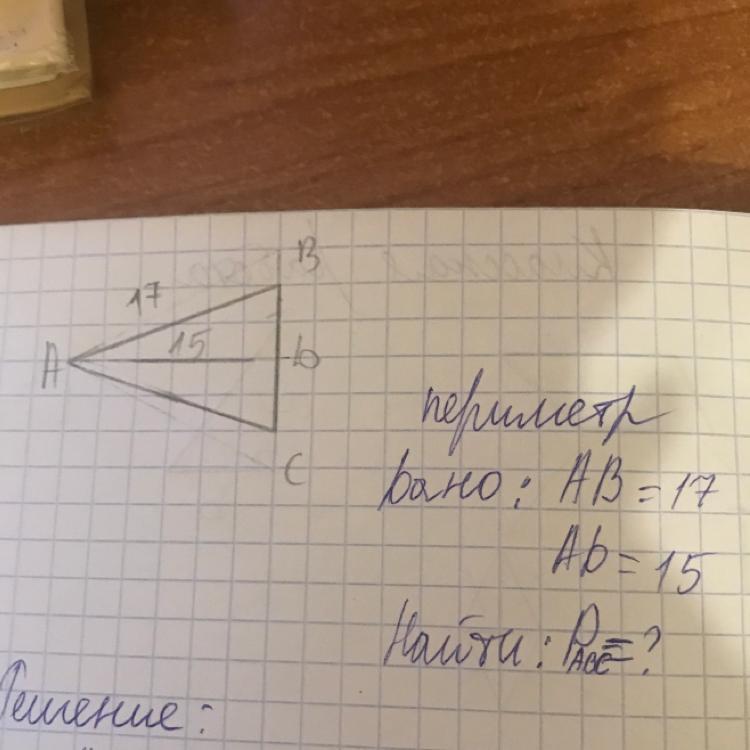 B
17
15
A
D
C
периметр
Дано: AB = 17
AD = 15
Найти: P ABC = ?
Решение: